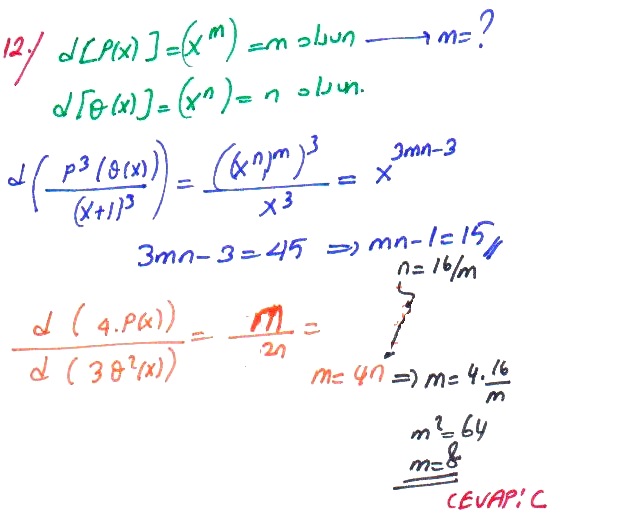 12./ d[P(x)]=(x^m)=m olsun → m=?
d[θ(x)]=(x^n)=n olsun.
d(P^3(θ(x))/(x+1)^3) = ((x^n)^m)^3/x^3 = x^(3mn-3)
3mn-3=45 ⇒ mn-1=15
n=16/m
d(4.P(x))/d(3θ^2(x)) = m/2n =
m=4n ⇒ m=4.16/m
m^2=64
m=8
CEVAP:C